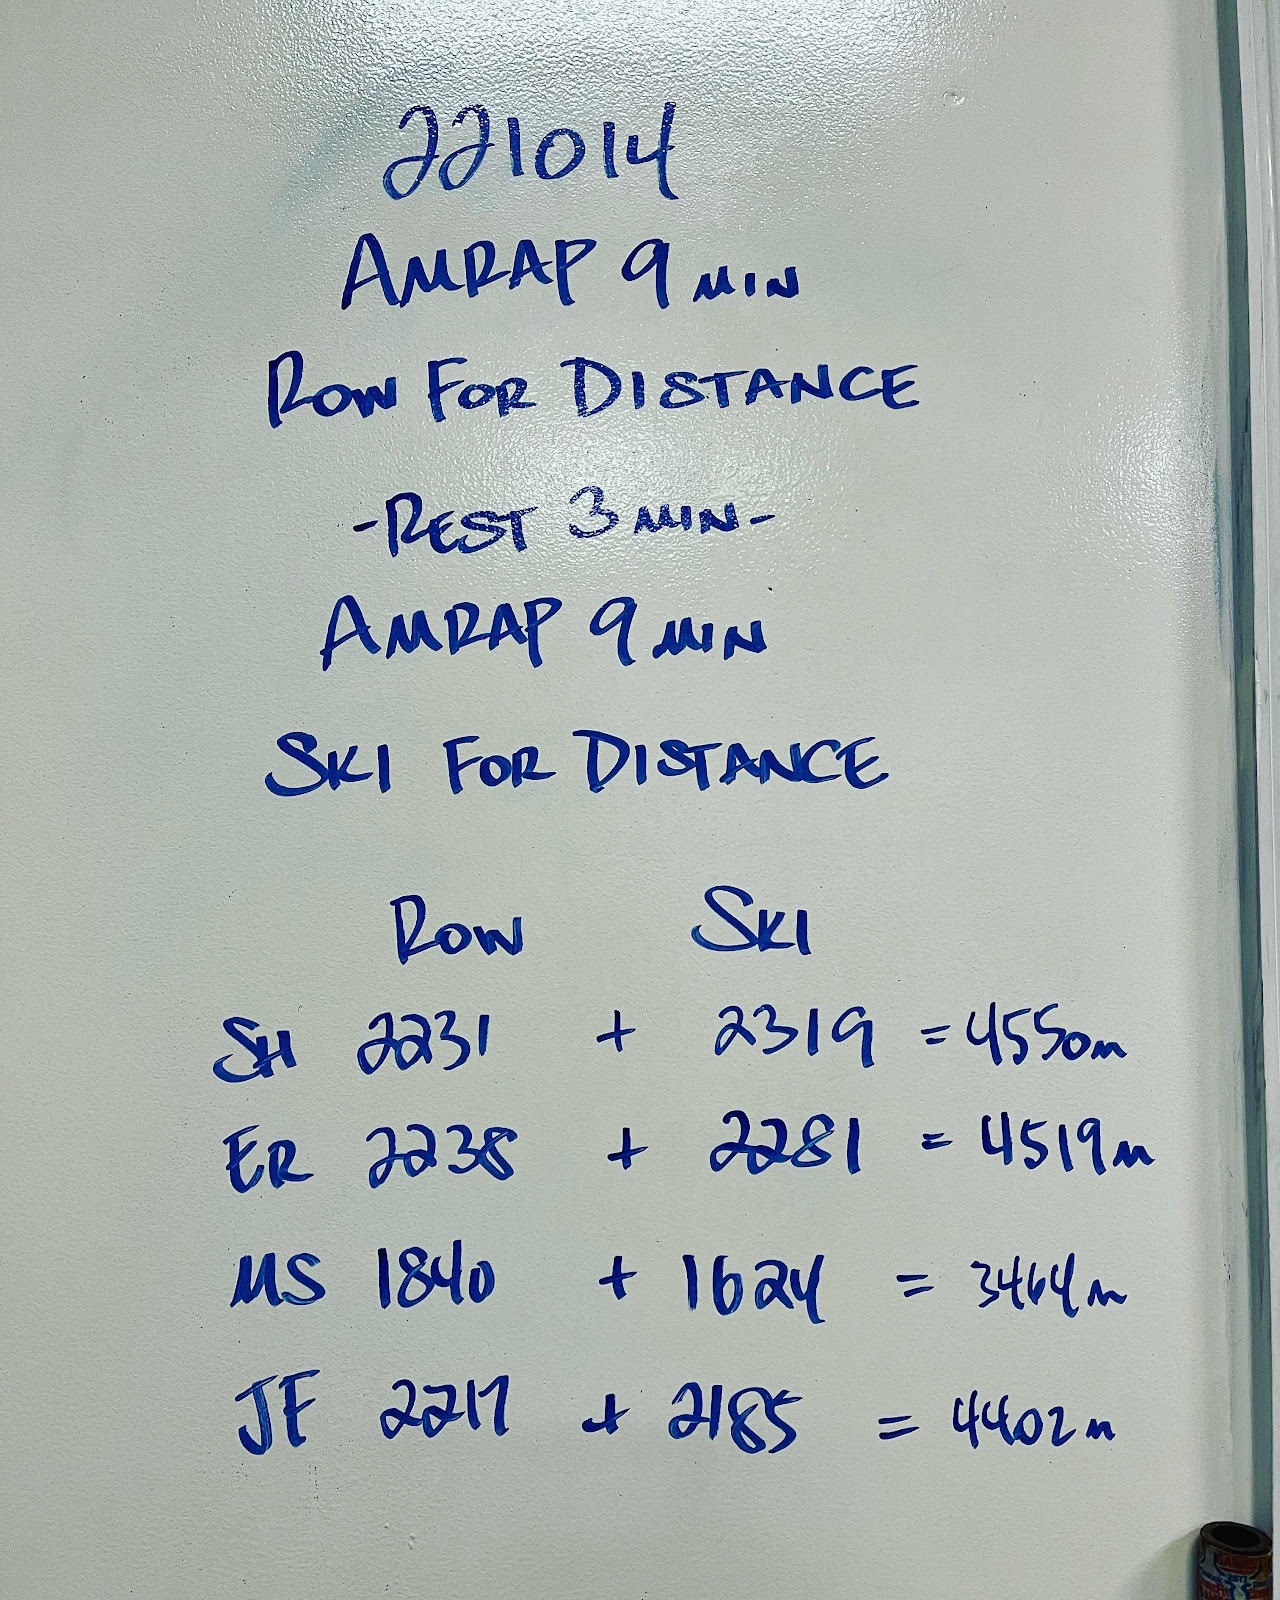 221014
AMRAP 9 MIN
ROW FOR DISTANCE
-REST 3 MIN-
AMRAP 9 MIN
SKI FOR DISTANCE
ROW SKI
SH 2231 + 2319 = 4550m
ER 2238 + 2281 = 4519m
MS 1840 + 1624 = 3464m
JF 2217 + 2185 = 4402m